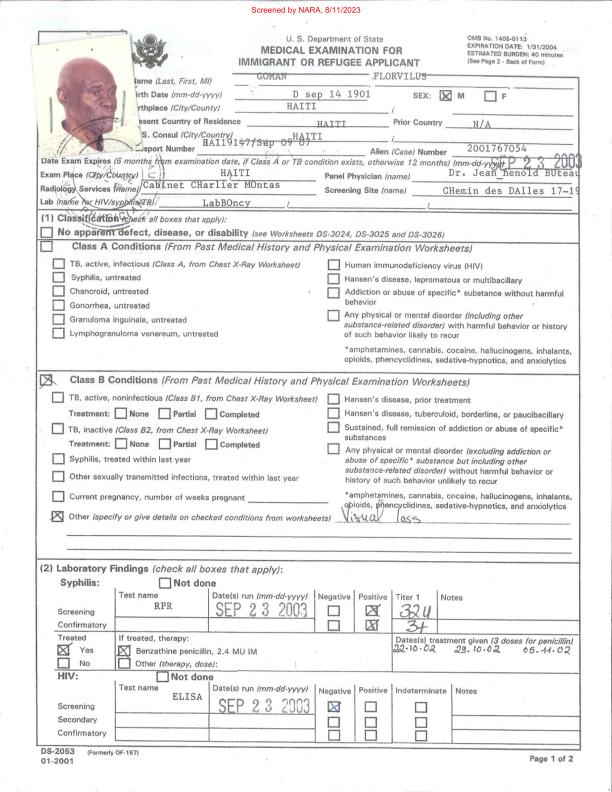 Screened by NARA, 8/11/2023
U. S. Department of State
MEDICAL EXAMINATION FOR
IMMIGRANT OR REFUGEE APPLICANT
OMB No. 1405-0113
EXPIRATION DATE: 1/31/2004
ESTIMATED BURDEN: 40 minutes
(See Page 2 - Back of Form)
Name (Last, First, MI) GOMAN ,FLORVILUS
Birth Date (mm-dd-yyyy) D sep 14 1901 SEX: M F
Birthplace (City/Country) HAITI /
Present Country of Residence HAITI Prior Country N/A
U.S. Consul (City/Country) HAITI /
Passport Number HAI19147/Sep 09 07 Alien (Case) Number 2001767054
Date Exam Expires (6 months from examination date, if Class A or TB condition exists, otherwise 12 months) (mm-dd-yyyy) SEP 23 2003
Exam Place (City/Country) HAITI Panel Physician (name) Dr. Jean henold BUteau
Radiology Services (name) Cabinet Charlier MOntas Screening Site (name) CHemin des DAlles 17-19
Lab (name for HIV/syphilis/TB) LabBOncy / /
(1) Classification (check all boxes that apply):
No apparent defect, disease, or disability (see Worksheets DS-3024, DS-3025 and DS-3026)
Class A Conditions (From Past Medical History and Physical Examination Worksheets)
TB, active, infectious (Class A, from Chest X-Ray Worksheet)
Syphilis, untreated
Chancroid, untreated
Gonorrhea, untreated
Granuloma inguinale, untreated
Lymphogranuloma venereum, untreated
Human immunodeficiency virus (HIV)
Hansen's disease, lepromatous or multibacillary
Addiction or abuse of specific* substance without harmful
behavior
Any physical or mental disorder (including other
substance-related disorder) with harmful behavior or history
of such behavior likely to recur
*amphetamines, cannabis, cocaine, hallucinogens, inhalants,
opioids, phencyclidines, sedative-hypnotics, and anxiolytics
Class B Conditions (From Past Medical History and Physical Examination Worksheets)
TB, active, noninfectious (Class B1, from Chest X-Ray Worksheet)
Treatment: None Partial Completed
TB, inactive (Class B2, from Chest X-Ray Worksheet)
Treatment: None Partial Completed
Syphilis, treated within last year
Other sexually transmitted infections, treated within last year
Current pregnancy, number of weeks pregnant
Other (specify or give details on checked conditions from worksheets) Visual loss
Hansen's disease, prior treatment
Hansen's disease, tuberculoid, borderline, or paucibacillary
Sustained, full remission of addiction or abuse of specific*
substances
Any physical or mental disorder (excluding addiction or
abuse of specific* substance but including other
substance-related disorder) without harmful behavior or
history of such behavior unlikely to recur
*amphetamines, cannabis, cocaine, hallucinogens, inhalants,
opioids, phencyclidines, sedative-hypnotics, and anxiolytics
(2) Laboratory Findings (check all boxes that apply):
Syphilis: Not done
Test name Date(s) run (mm-dd-yyyy) Negative Positive Titer 1 Notes
Screening RPR SEP 23 2003 32u
Confirmatory 3+
Treated If treated, therapy: Dates(s) treatment given (3 doses for penicillin)
Yes Benzathine penicillin, 2.4 MU IM 22.10.02 29.10.02 05.11.02
No Other (therapy, dose):
HIV: Not done
Test name Date(s) run (mm-dd-yyyy) Negative Positive Indeterminate Notes
Screening ELISA SEP 23 2003
Secondary
Confirmatory
DS-2053 (Formerly OF-157)
01-2001
Page 1 of 2